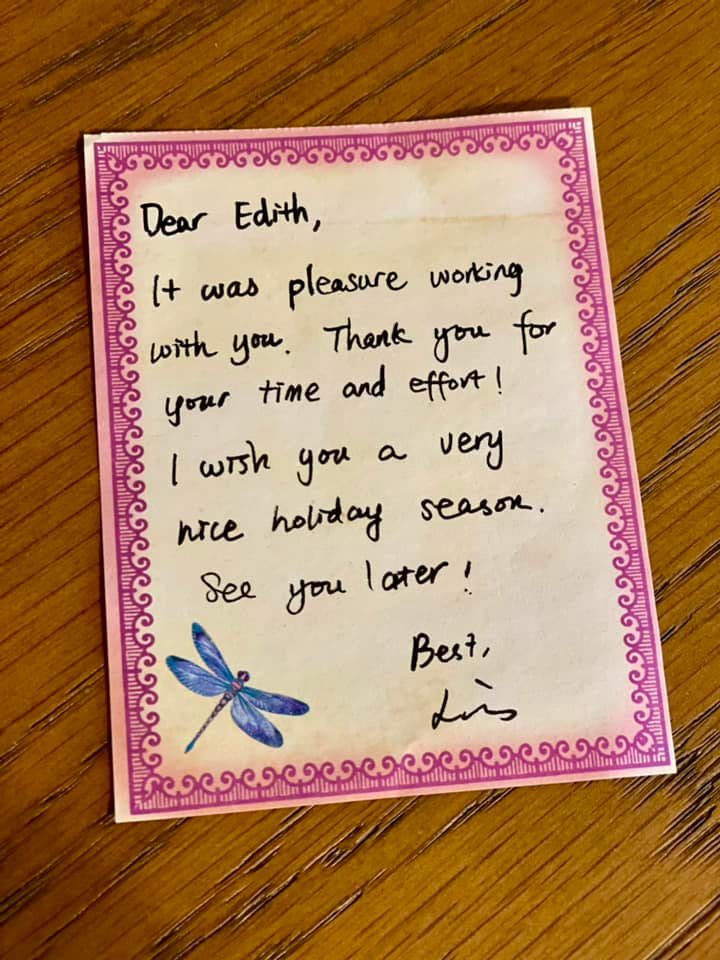 Dear Edith,
It was pleasure working
with you. Thank you for
your time and effort!
I wish you a very
nice holiday season.
See you later!
Best,